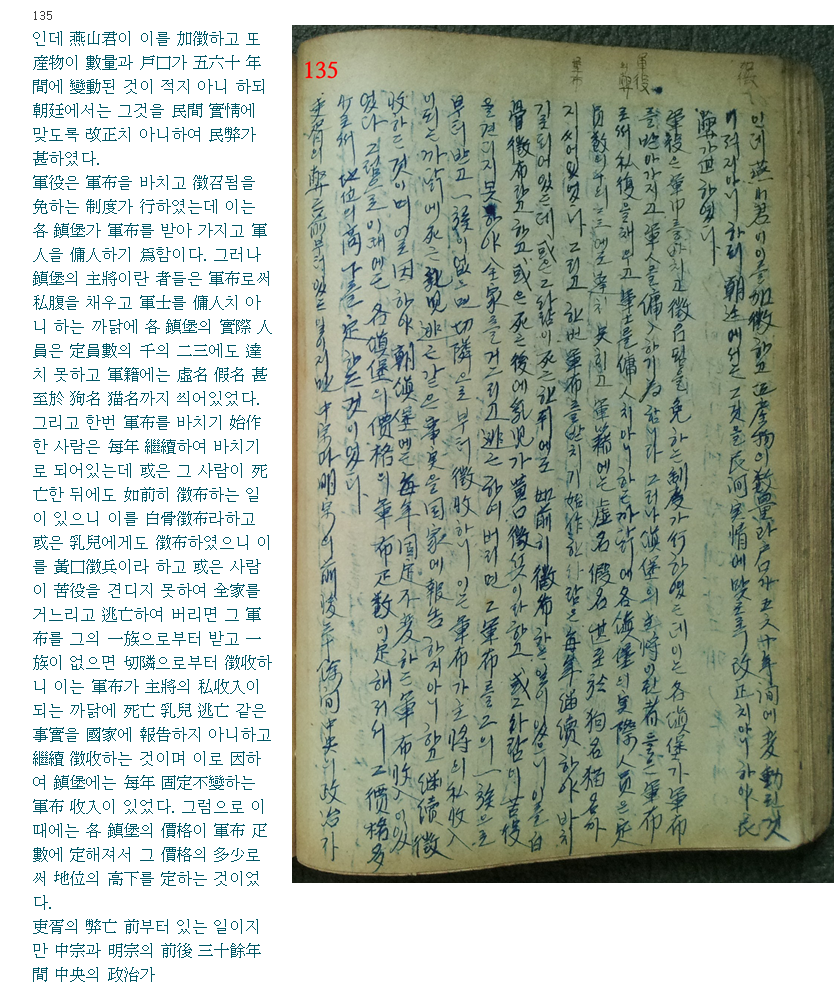 135
인데 燕山君이 이를 加徵하고 또
産物이 數量과 戶口가 五六十 年
間에 變動된 것이 적지 아니 하되
朝廷에서는 그것을 民間 實情에
맞도록 改正치 아니하여 民弊가
甚하였다.
軍役은 軍布을 바치고 徵召됨을
免하는 制度가 行하였는데 이는
各 鎭堡가 軍布를 받아 가지고 軍
人을 傭人하기 爲함이다. 그러나
鎭堡의 主將이란 者들은 軍布로써
私腹을 채우고 軍士를 傭人치 아
니 하는 까닭에 各 鎭堡의 實際 人
員은 定員數의 千의 二三에도 達
치 못하고 軍籍에는 虛名 假名 甚
至於 狗名 猫名까지 씌어있었다.
그리고 한번 軍布를 바치기 始作
한 사람은 每年 繼續하여 바치기
로 되어있는데 或은 그 사람이 死
亡한 뒤에도 如前히 徵布하는 일
이 있으니 이를 白骨徵布라하고
或은 乳兒에게도 徵布하였으니 이
를 黃口徵兵이라 하고 或은 사람
이 苦役을 견디지 못하여 全家를
거느리고 逃亡하여 버리면 그 軍
布를 그의 一族으로부터 받고 一
族이 없으면 切隣으로부터 徵收하
니 이는 軍布가 主將의 私收入이
되는 까닭에 死亡 乳兒 逃亡 같은
事實을 國家에 報告하지 아니하고
繼續 徵收하는 것이며 이로 因하
여 鎭堡에는 每年 固定不變하는
軍布 收入이 있었다. 그럼으로 이
때에는 各 鎭堡의 價格이 軍布 疋
數에 定해져서 그 價格의 多少로
써 地位의 高下를 定하는 것이었
다.
吏胥의 弊亡 前부터 있는 일이지
만 中宗과 明宗의 前後 三十餘年
間 中央의 政治가
135
인데 燕山君이 이를 加徵하고 또 産物의 數量과 戶口가 五六十年間에 變動된 것
이 적지 아니하되 朝廷에서는 그것을 民間 實情에 맞도록 改正치 아니하야 民
弊가 甚하였다
軍役은 軍布를 바치고 徵召됨을 免하는 制度가 行하였는데 이는 各 鎭堡가 軍布
를 받아가지고 軍人을 傭人하기 爲함이다 그러나 鎭堡의 主將이란 者들은 軍布
로써 私腹을 채우고 軍士를 傭人치 아니하는 까닭에 各 鎭堡의 實際 人員은 定
員數의 에도 達치 못하고 軍籍에는 虛名 假名 甚至於 狗名 猫名까
지 씨어있었다 그리고 한번 軍布를 바치기 始作한 사람은 每年 繼續하야 바치
기로 되어있는데 或은 그 사람이 死亡한 뒤에도 如前히 徵布하는 일이 있으니 이를 白
骨徵布라 하고 或은 後에 乳兒가 黃口徵兵이라 하고 或 그 사람이 苦役
을 견디지 못하야 全家를 거느리고 逃亡하여 버리면 그 軍布를 그의 一族으로
부터 받고 一族이 없으면 切隣으로부터 徵收하니 이는 軍布가 主將의 私收入
이 되는 까닭에 死亡 乳兒 逃亡 같은 事實을 國家에 報告하지 아니하고 繼續 徵
收하는 것이며 이로 因하야 鎭堡에는 每年 固定不變하는 軍布 收入이 있
었다 그럼으로 이때에는 各 鎭堡의 價格이 軍布 疋數에 定해져서 그 價格 多
少로써 地位의 高下를 定하는 것이었다
吏胥의 弊는 前부터 있는 일이지만 中宗과 明宗의 前後 三十餘年間 中央의 政治가
軍役의 弊
軍布